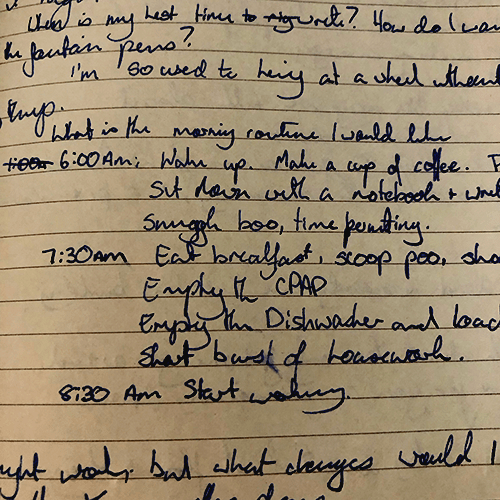 When is my best time to write? How do I wan
the fountain pens?
I'm so used to being at a wheel without
Emp.
What is the morning routine I would like
6:00 Am: Wake up. Make a cup of coffee. F
Sit down with a notebook + writ
Snuggle boo, time permitting.
7:30am Eat breakfast, scoop poo, sho
Empty the CPAP
Empty the Dishwasher and load
Short burst of housework.
8:30 Am Start working.
ught work, but what changes would I